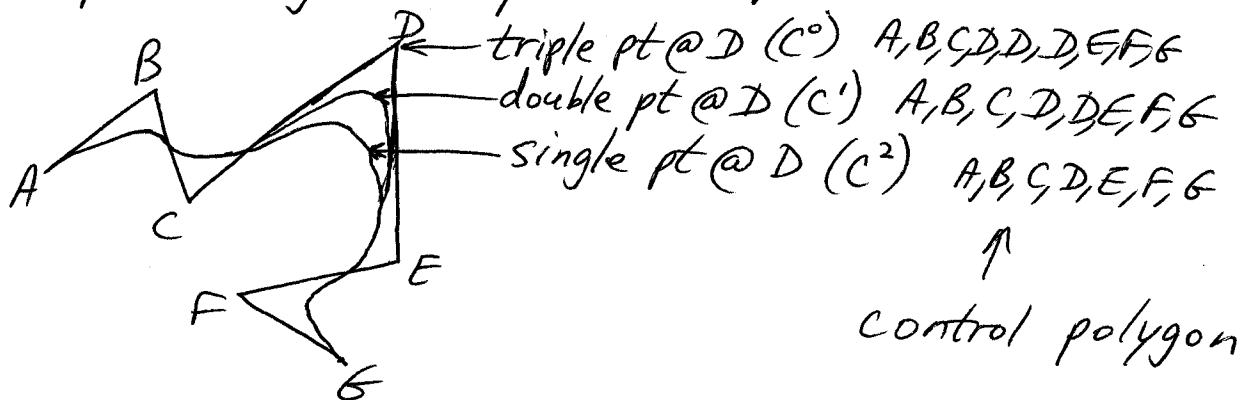 D
triple pt @ D (C⁰) A,B,C,D,D,D,E,F,G
B
double pt @ D (C¹) A,B,C,D,D,E,F,G
single pt @ D (C²) A,B,C,D,E,F,G
A
C
E
F
control polygon
G